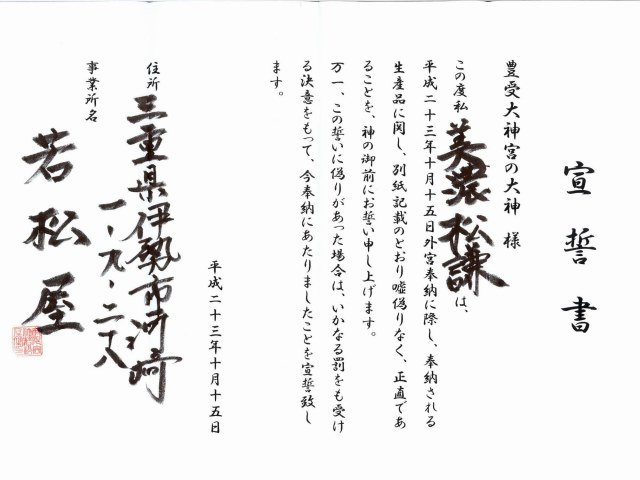 宣誓書
豊受大神宮の大神 様
この度私 美濃松謙 は、
平成二十三年十月十五日外宮奉納に際し、奉納される
生産品に関し、別紙記載のとおり嘘偽りなく、正直であ
ることを、神の御前にお誓い申し上げます。
万一、この誓いに偽りがあった場合は、いかなる罰をも受け
る決意をもって、今奉納にあたりましたことを宣誓致し
ます。
平成二十三年十月十五日
住所 三重県伊勢市河崎
一、九、二十八
事業所名
若松屋